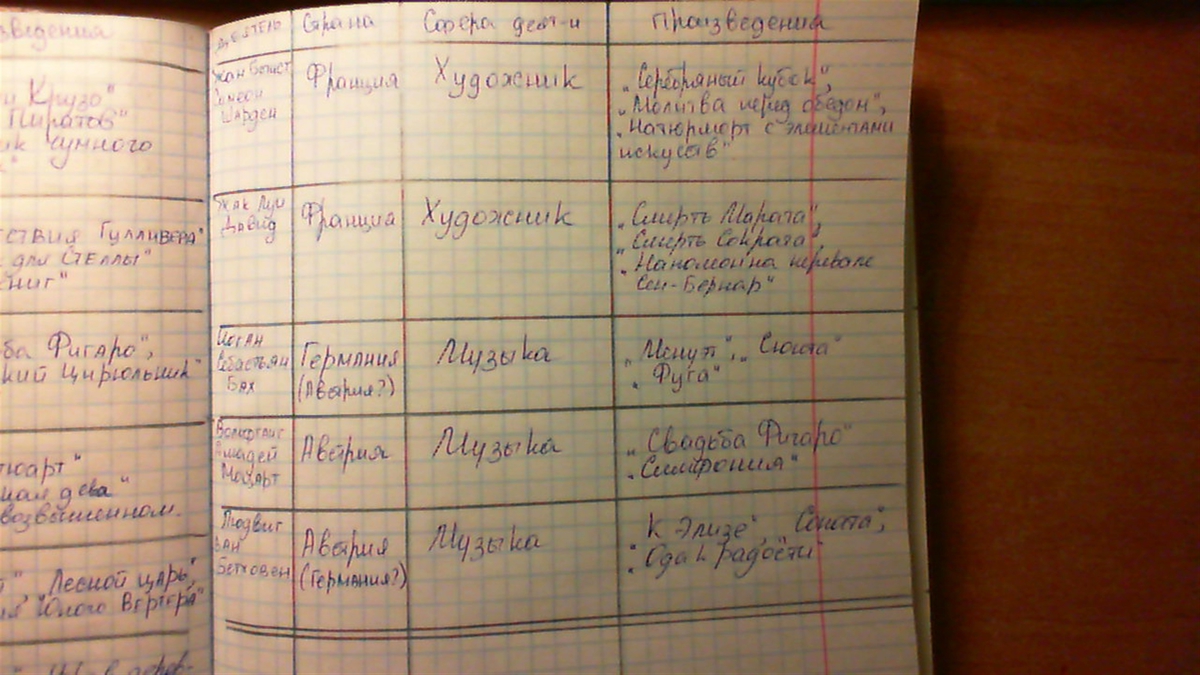 зведения
и Крузо"
Пиратов"
ик чумного
ствия Гулливера"
для Стеллы"
ниг"
ба Фигаро",
кий цирюльник"
тюарт"
ная дева"
возвышенном.
"Лесной царь",
Юного Вертера"
Деятель Страна Сфера деят-и Произведения
Жан Батист
Симеон
Шарден
Франция
Художник
„Серебряный кубок",
„Молитва перед обедом",
„Натюрморт с элементами
искусств"
Жак Луи
Давид
Франция
Художник
„Смерть Марата",
„Смерть Сократа",
„Наполеон на перевале
Сен-Бернар"
Иоган
Себастьян
Бах
Германия
(Австрия?)
Музыка
„Менуэт", „Сюита"
„Фуга"
Вольфганг
Амадей
Моцарт
Австрия
Музыка
„Свадьба Фигаро"
„Симфония"
Людвиг
ван
Бетховен
Австрия
(Германия?)
Музыка
К Элизе", Соната",
„Ода к радости"